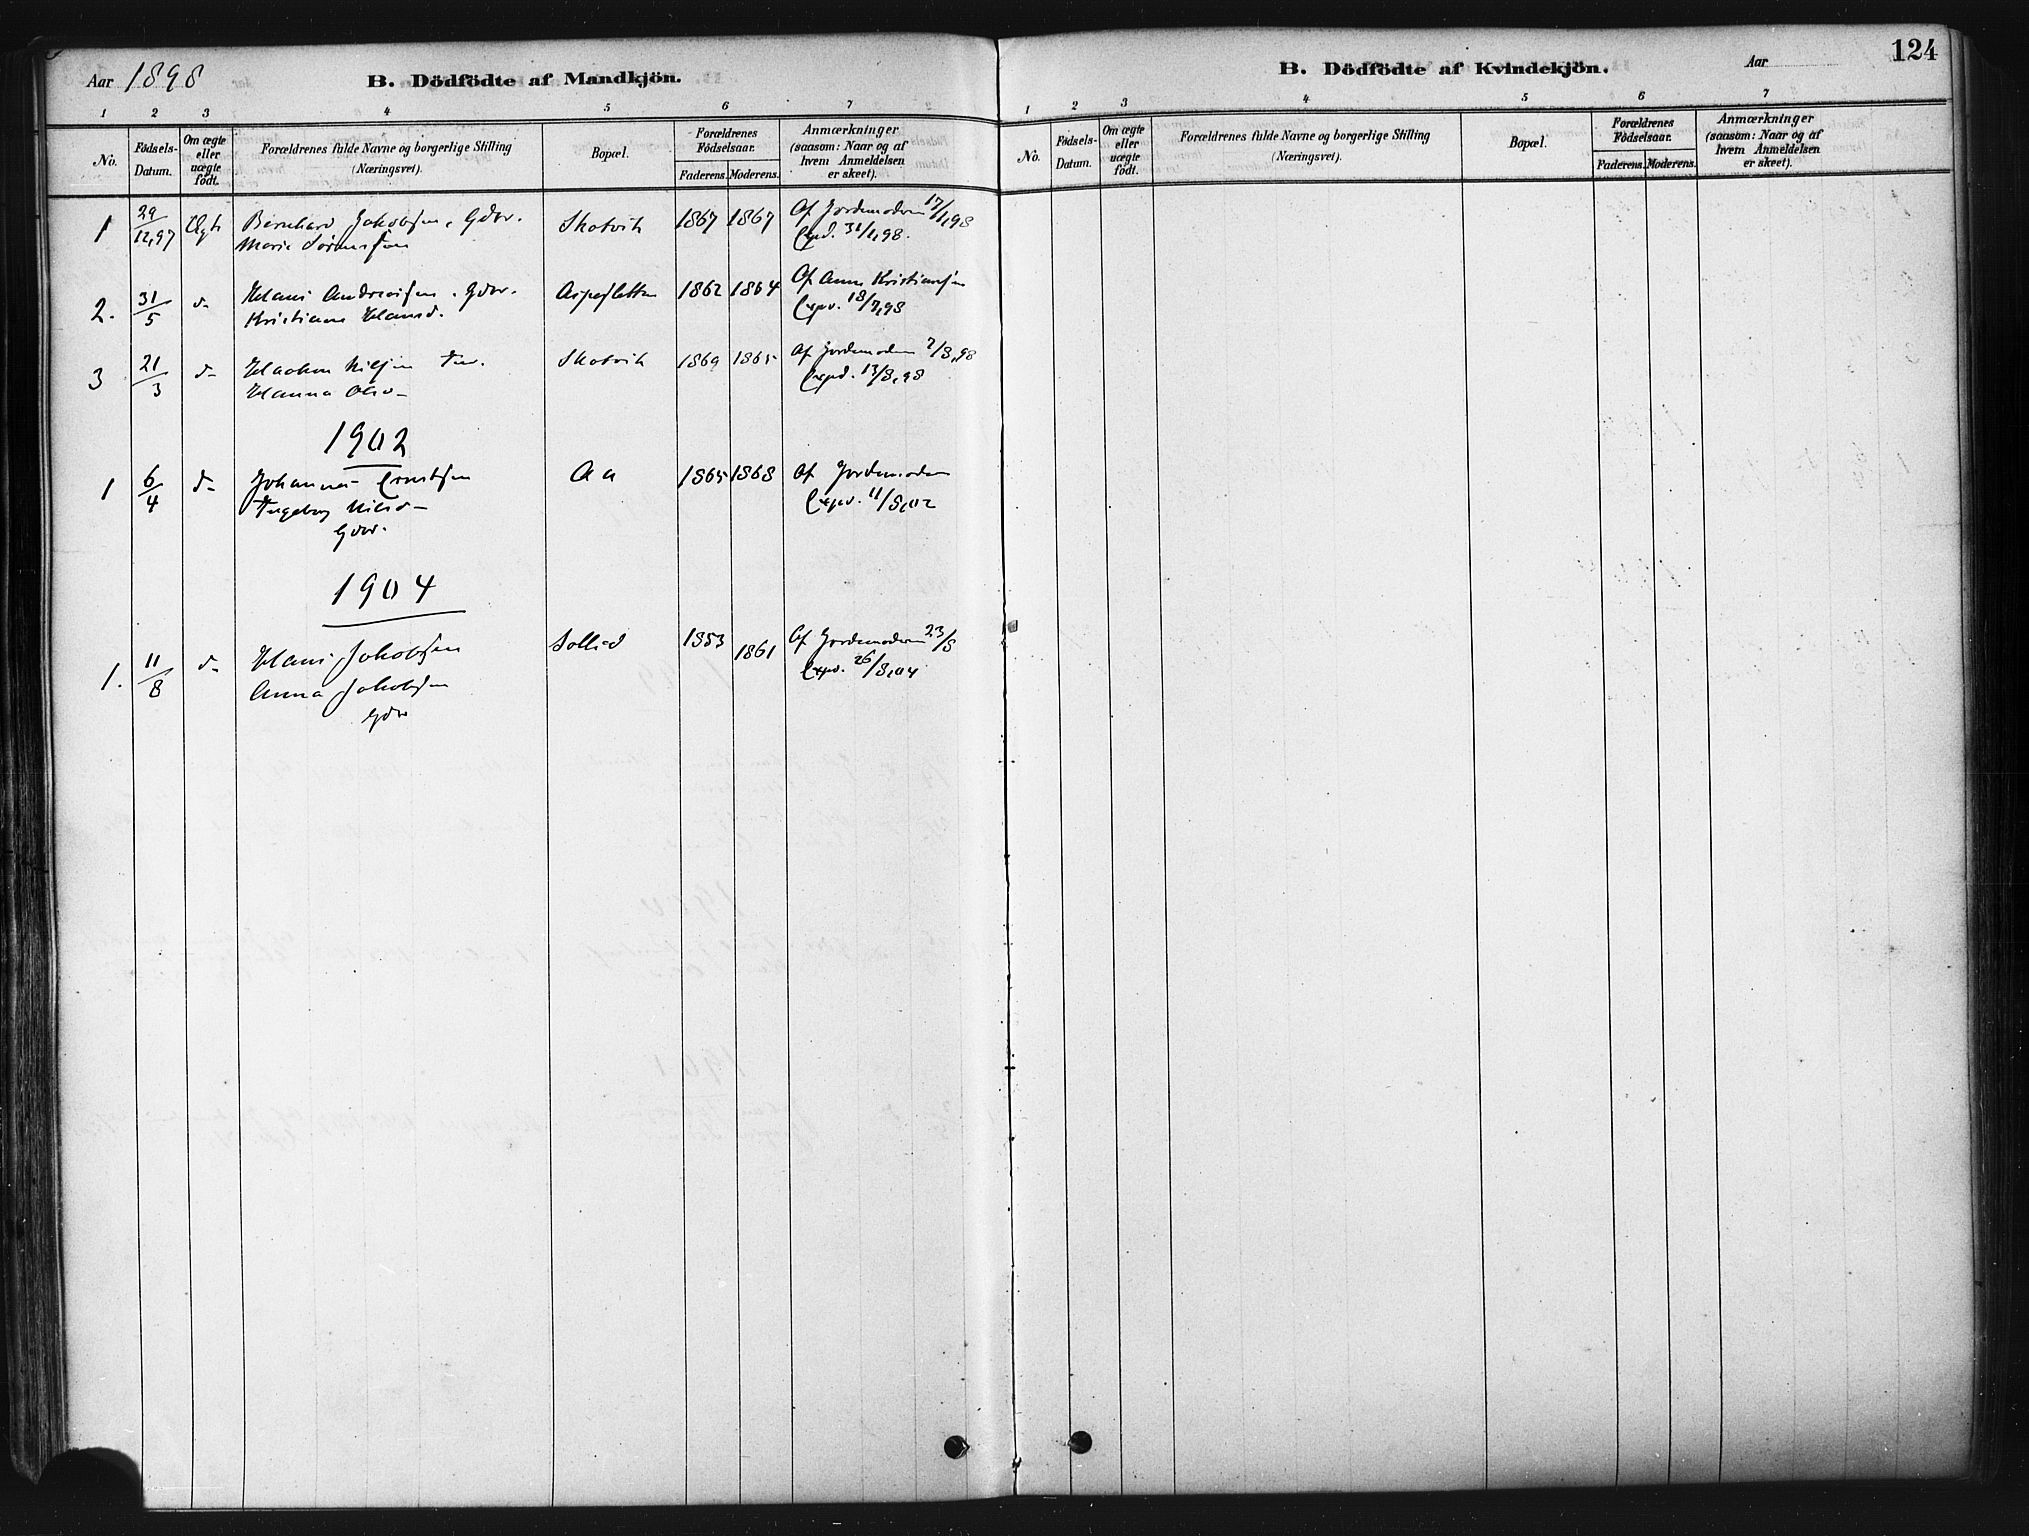 Aar 1898
B. Dödfödte af Mandkjön.
1 2 3 4 5 6 7
No.
Födsels-Datum.
Om ægte eller uægte födt.
Forældrenes fulde Navne og borgerlige Stilling (Næringsvei).
Bopæl.
Forældrenes Födselsaar.
Faderens. Moderens.
Anmærkninger (saasom: Naar og af hvem Anmeldelsen er skeet).
1 29/12,97 Ægte Bernhard Jakobsen, Gdbr. Skotvik 1867 1867 Af Jordemoderen 17/1,98
Marie Sørensen Exped. 31/1,98.
2. 31/5 do Hans Andreassen. Gdbr. Aspesletten 1862 1864 Af Anne Kristiansen
Kristiane Hansd. Exped. 18/7,98
3 21/3 do Haakon Nilsen Skotvik 1869 1865 Af Jordemoderen 7/8,98
Hanna Olsd Exped. 13/8,98
1902
1 6/4 do Johannes Ernstsen Aa 1865 1868 Af Jordemoderen
Ingeborg Nilsd Exped. 11/8,02
Gdbr.
1904
1. 11/8 do Hans Jakobsen Sollid 1853 1861 Af Jordemoderen 23/8
Anna Jakobsen Exped. 26/8,04
Gdbr
124
B. Dödfödte af Kvindekjön.
Aar
1 2 3 4 5 6 7
No.
Födsels-Datum.
Om ægte eller uægte födt.
Forældrenes fulde Navne og borgerlige Stilling (Næringsvei).
Bopæl.
Forældrenes Födselsaar.
Faderens. Moderens.
Anmærkninger (saasom: Naar og af hvem Anmeldelsen er skeet).